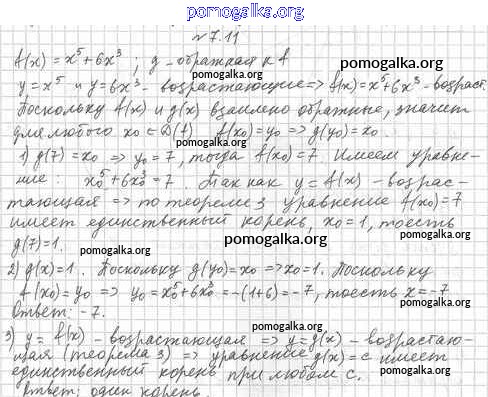 pomogalka.org
№7.11
f(x) = x⁵ + 6x³ ; g - обратная к f
pomogalka.org
y = x⁵ и y = 6x³ - возрастающие => f(x) = x⁵ + 6x³ - возраст.
pomogalka.org
Поскольку f(x) и g(x) взаимно обратные, значит
для любого x₀ ∈ D(f) f(x₀) = y₀ => g(y₀) = x₀.
pomogalka.org
1) g(7) = x₀ => y₀ = 7, тогда f(x₀) = 7. Имеем уравне-
ние: x₀⁵ + 6x₀³ = 7. Так как y = f(x) - возрас-
pomogalka.org pomogalka.org
тающая => по теореме 3 уравнение f(x₀) = 7
имеет единственный корень, x₀ = 1, то есть
g(7) = 1.
pomogalka.org pomogalka.org
2) g(x) = 1. Поскольку g(y₀) = x₀ => x₀ = 1. Поскольку
f(x₀) = y₀ => y₀ = x₀⁵ + 6x₀³ = -(1+6) = -7, то есть x = -7
pomogalka.org
Ответ: -7.
pomogalka.org
3) y = f(x) - возрастающая => y = g(x) - возрастаю-
щая (теорема 3) => уравнение g(x) = c имеет
pomogalka.org
единственный корень при любом c.
pomogalka.org pomogalka.org
Ответ: один корень.